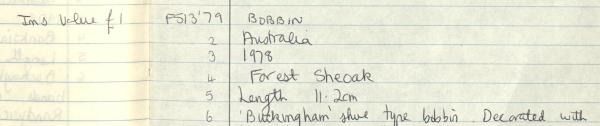 Ins Value £1 F513'79 BOBBIN
2 Australia
3 1978
4 Forest Sheoak
5 Length 11.2cm
6 'Buckingham' shue type bobbin. Decorated with